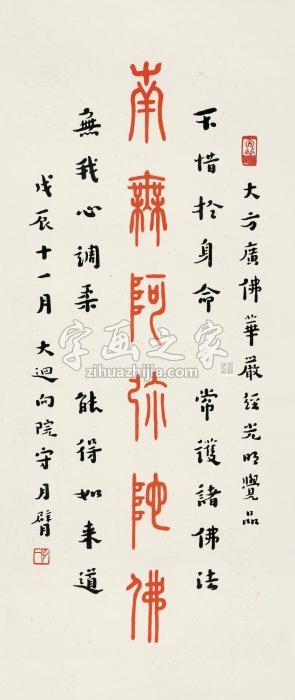 大方廣佛華嚴經光明覺品
不惜於身命 常護諸佛法
南無阿弥陀佛
無我心調柔 能得如来道
戊辰十一月 大迴向院守月臂
字画之家
zihuazhijia.com